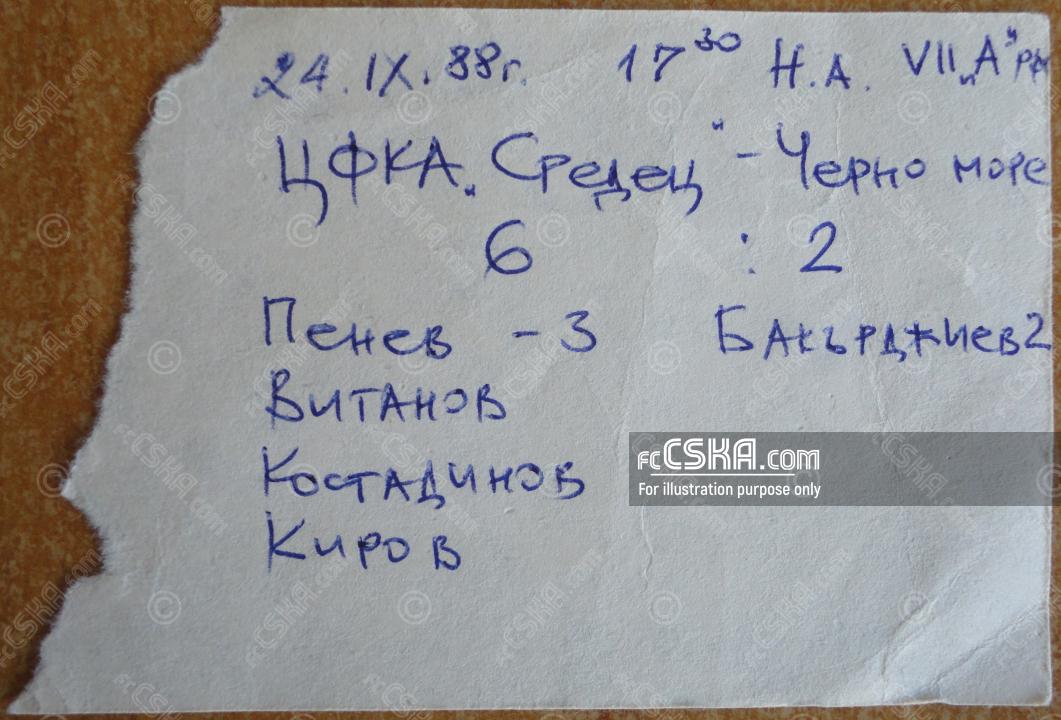 24.IX.88г. 17³⁰ Н.А. VII „А"
ЦФКА „Средец" - Черно море
6 : 2
Пенев - 3 Бакърджиев 2
Витанов
Костадинов
Киров
fcCSKA.com
For illustration purpose only